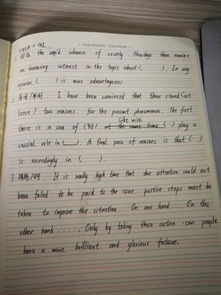 the rapid advance of society. Nowdays there remains
an increasing interest in the topic about ( ). In my
opinion ( ) is more advantageous.
2. I have been convinced that there stand (at
least) two reasons for the present phenomenon. The first
there is a sea of ( ) Like wise at the same time ( ) play a
crucial role in ( ). A final pair of reasons is that ( )
is exceedingly in ( ).
3. It is really high time that due attention could not
have failed to be paid to the issue, positive steps must be
taken to improve the situation. On one hand... On the
other hand ..... Only by taking these action can people
have a more brilliant and glorious fortune.